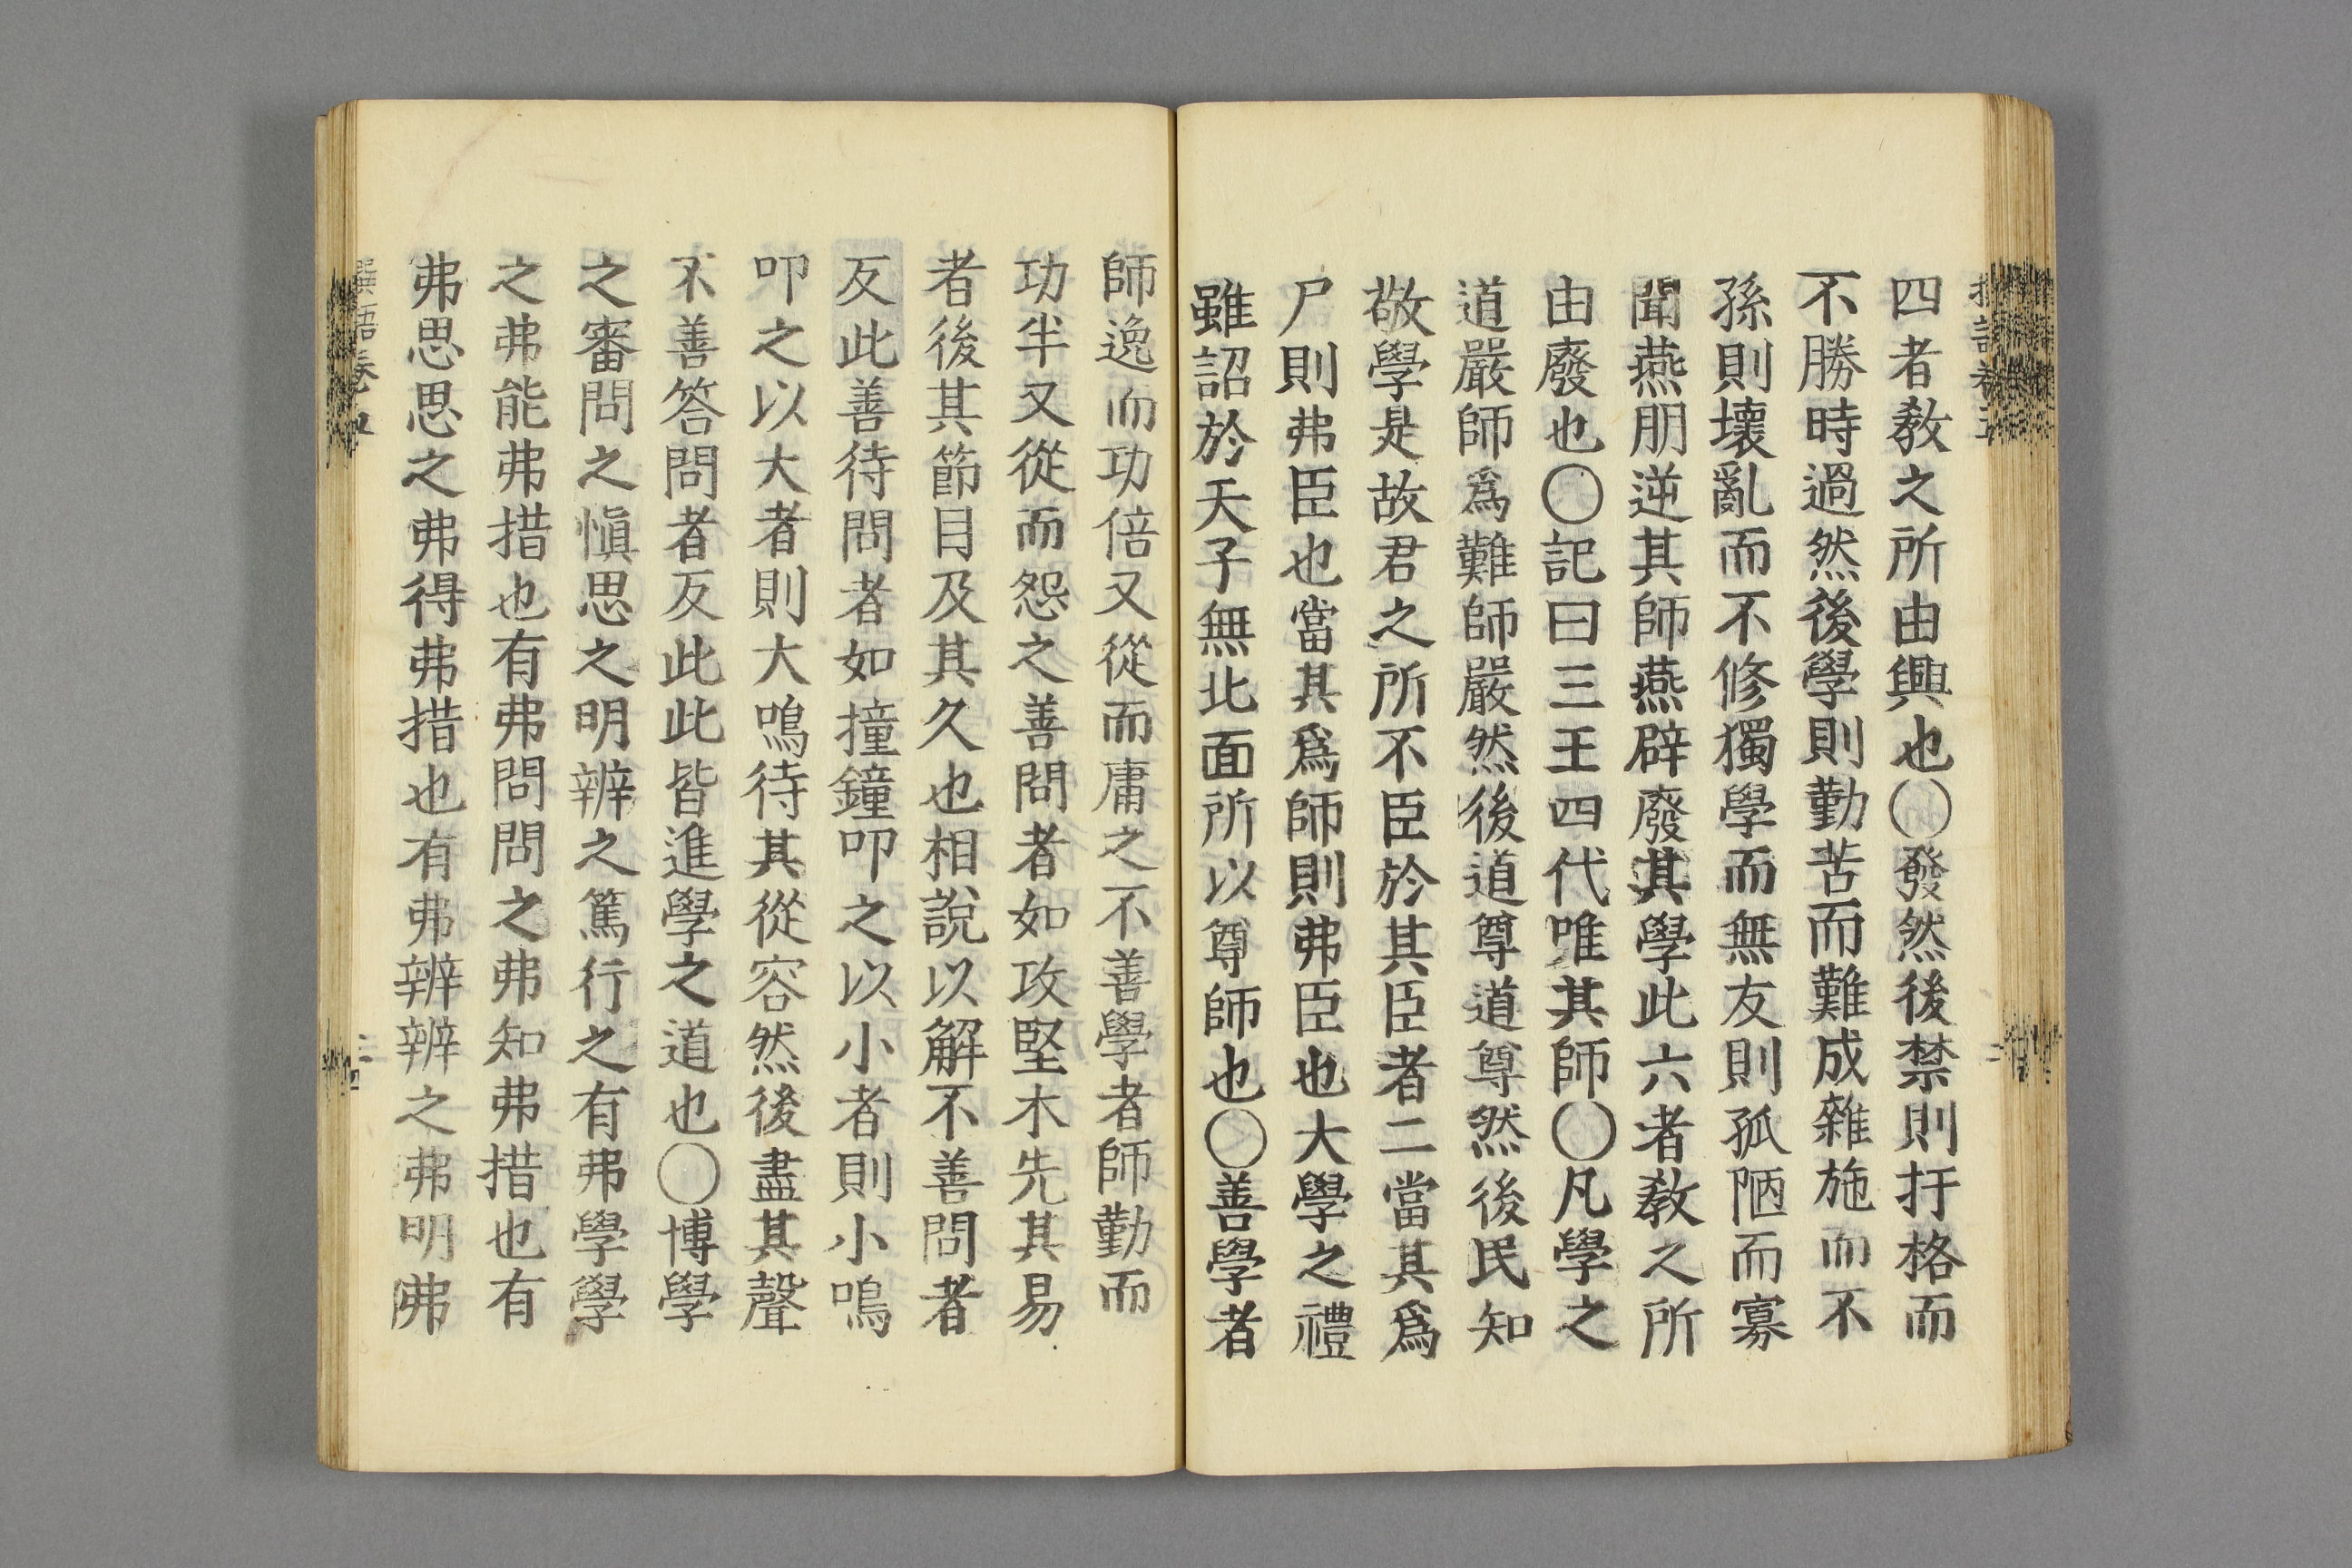 四者教之所由興也〇發然後禁則扞格而
不勝時過然後學則勤苦而難成雜施而不
孫則壞亂而不修獨學而無友則孤陋而寡
聞燕朋逆其師燕辟廢其學此六者教之所
由廢也〇記曰三王四代唯其師〇凡學之
道嚴師爲難師嚴然後道尊道尊然後民知
敬學是故君之所不臣於其臣者二當其爲
尸則弗臣也當其爲師則弗臣也大學之禮
雖詔於天子無北面所以尊師也〇善學者
師逸而功倍又從而庸之不善學者師勤而
功半又從而怨之善問者如攻堅木先其易
者後其節目及其久也相說以解不善問者
反此善待問者如撞鐘叩之以小者則小鳴
叩之以大者則大鳴待其從容然後盡其聲
不善答問者反此此皆進學之道也〇博學
之審問之愼思之明辨之篤行之有弗學學
之弗能弗措也有弗問問之弗知弗措也有
弗思思之弗得弗措也有弗辨辨之弗明弗